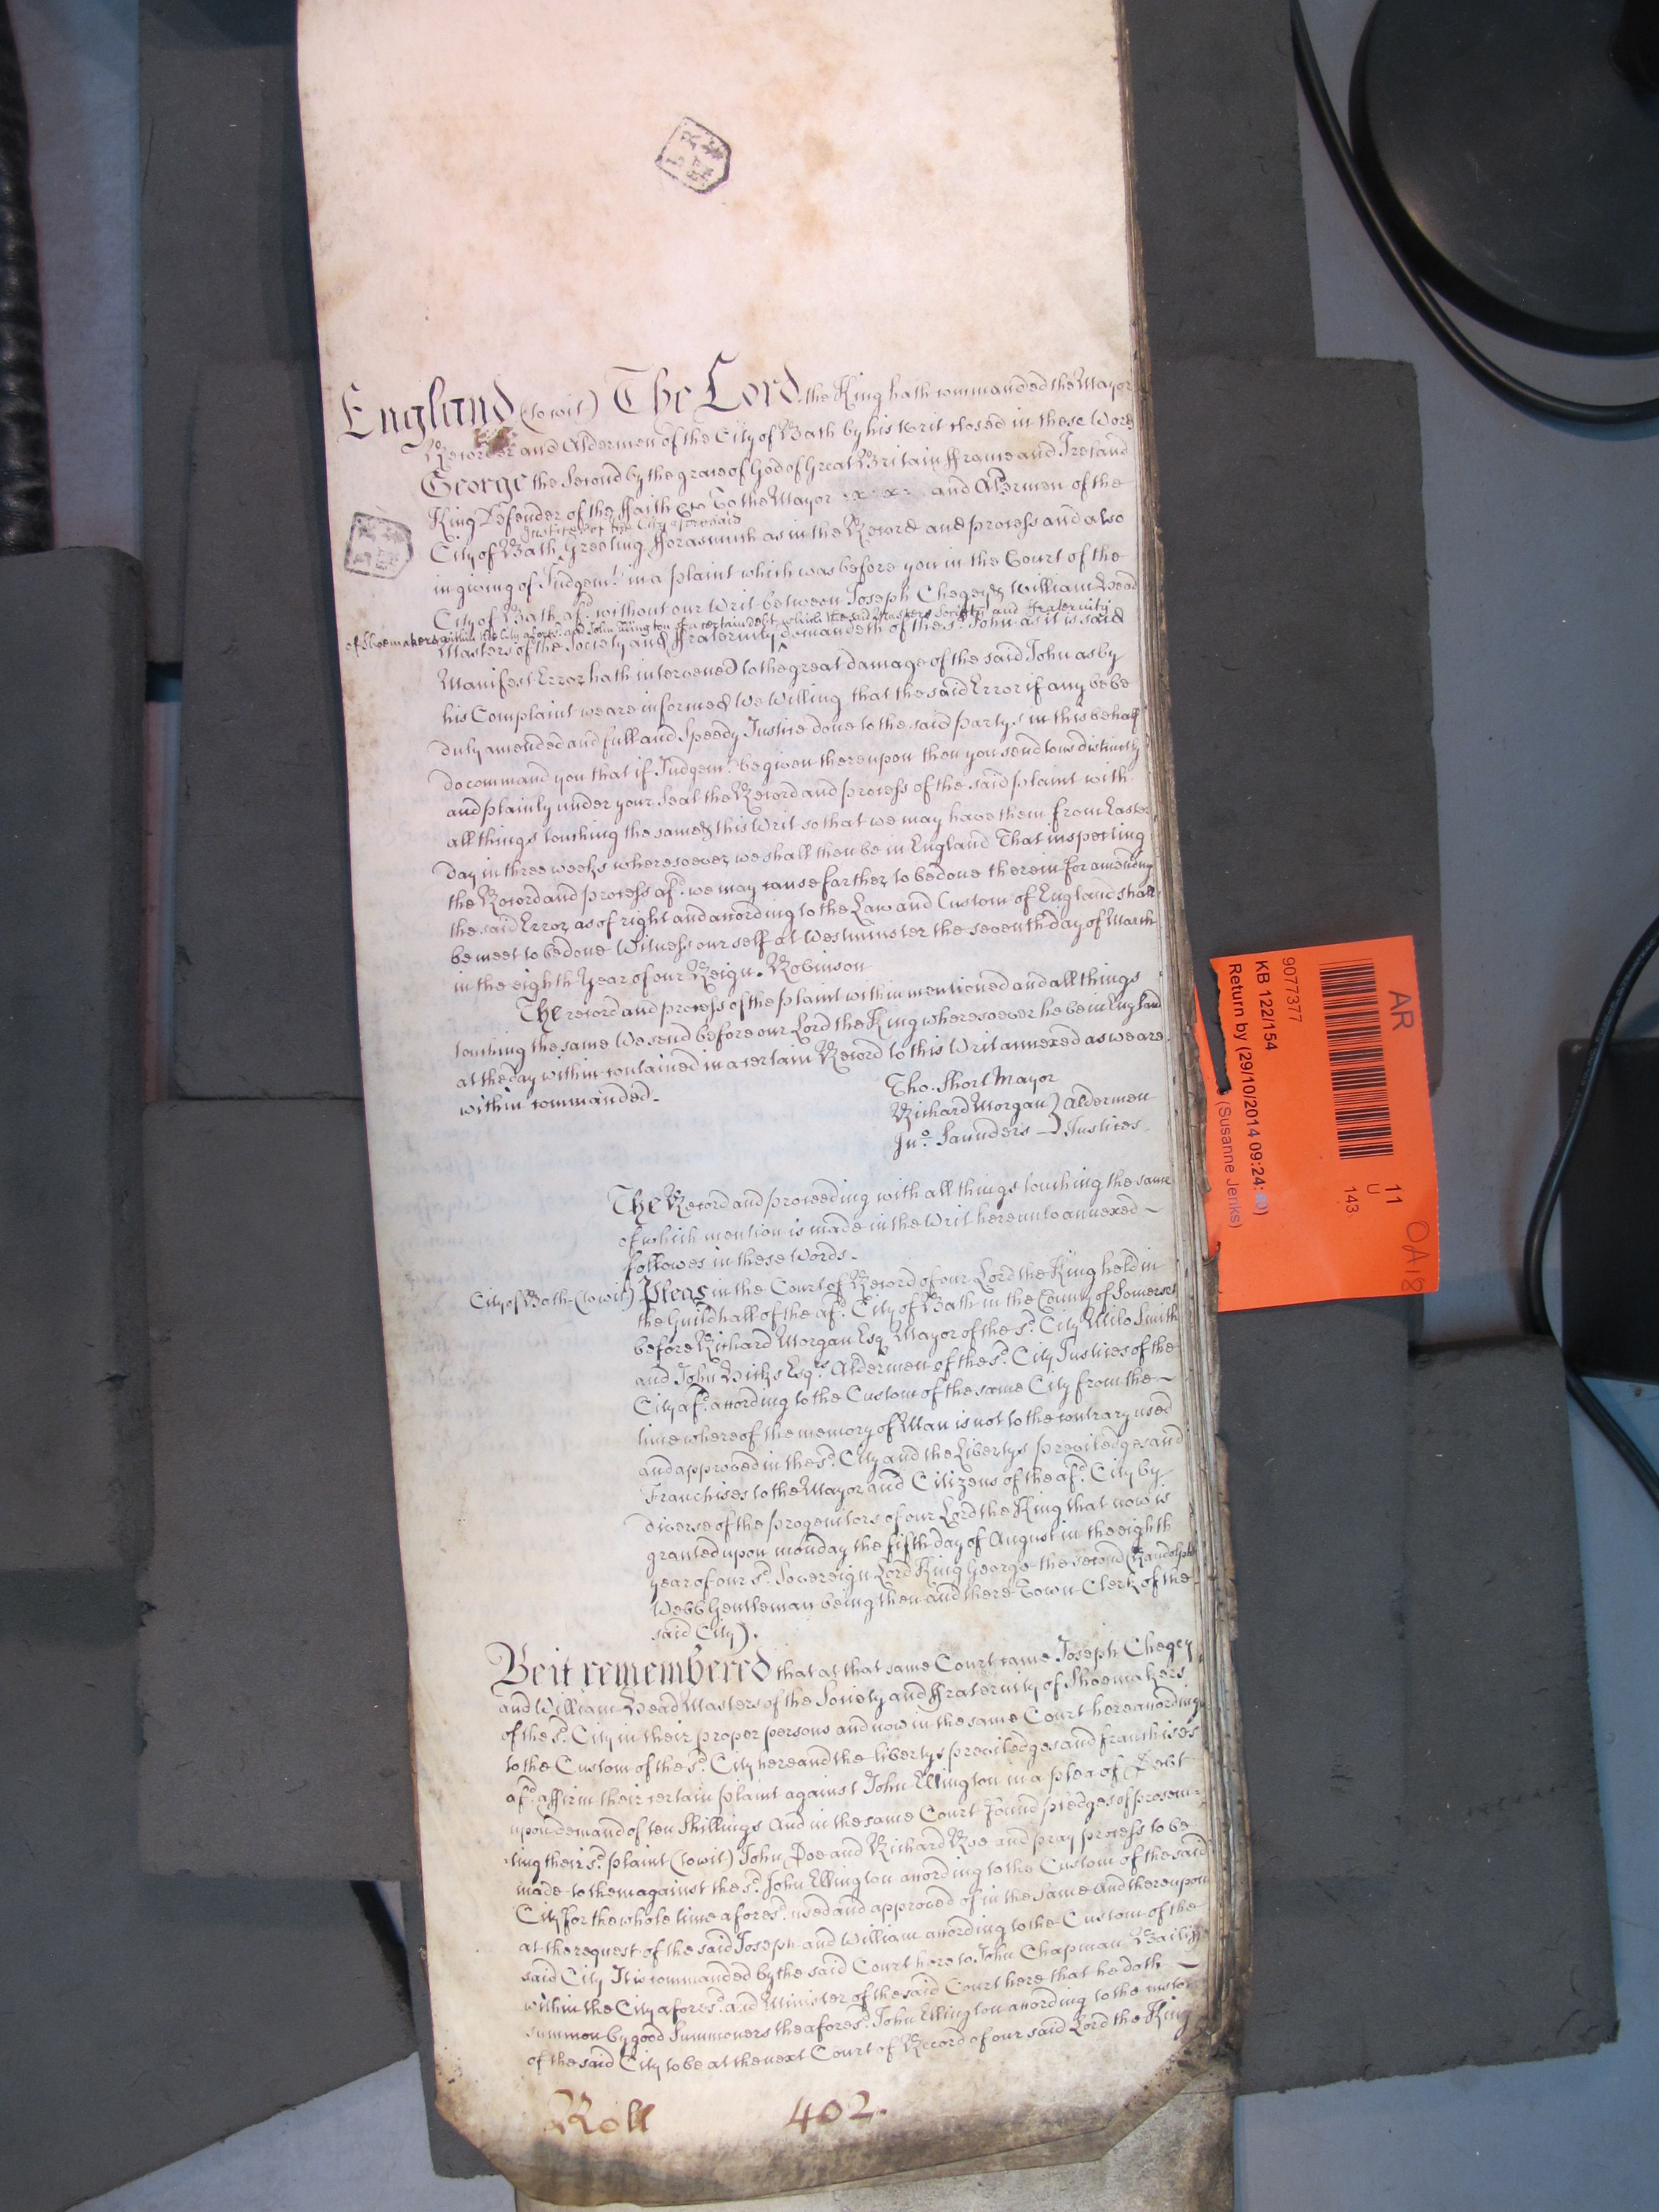 England (to wit) The Lord the King hath commanded the Mayor
Recorder and Aldermen of the City of Bath by his Writ closed in these Words
George the Second by the grace of God of Great Britain ffrance and Ireland
King Defender of the ffaith &c To the Mayor x x and Aldermen of the
Justices of the City aforesaid
City of Bath Greeting fforasmuch as in the Record and process and also
in giving of Judgemt. in a plaint which was before you in the Court of the
City of Bath afd. without our Writ between Joseph Chegey & William Head
of Shoemakers within the City afores.d and John Ellington of a certain debt which the said Masters Society and fraternity
Masters of the Society and ffraternity demandeth of the sd. John as it is said
Manifest Error hath intervened to the great damage of the said John as by
his Complaint we are informed We Willing that the said Error if any be be
duly amended and full and Speedy Justice done to the said partys in this behalf
do command you that if Judgemt. be given thereupon then you send to us distinctly
and plainly under your Seal the Record and process of the said plaint with
all things touching the same & this Writ so that we may have them from Easter
day in three weeks wheresoever we shall then be in England That inspecting
the Record and process afd. we may cause farther to be done therein for amending
the said Error as of right and according to the Law and Custom of England shall
be meet to be done Witness our self at Westminster the seventh day of March
in the eighth Year of our Reign. Robinson
The record and process of the plaint within mentioned and all things
touching the same We send before our Lord the King wheresoever he be in England
at the day within contained in a certain Record to this Writ annexed as we are
within commanded.
Tho. Short Mayor
Richard Morgan } Aldermen
Jno. Saunders } Justices
The Record and proceeding with all things touching the same
of which mention is made in the Writ hereunto annexed
followes in these Words.
City of Bath (to wit) Pleas in the Court of Record of our Lord the King held in
the Guildhall of the afd. City of Bath in the County of Somerset
before Richard Morgan Esq Mayor of the sd. City Milo Smith
and John Hicks Esqrs. Aldermen of the sd. City Justices of the
City afd. according to the Custom of the same City from the
time whereof the memory of Man is not to the contrary used
and approved in the sd. City and the Libertys priviledges and
Franchises to the Mayor and Citizens of the afd. City by
diverse of the progenitors of our Lord the King that now is
granted upon monday the fifth day of August in the eighth
year of our sd. Sovereign Lord King George the second (Randolph
Webb Gentleman being then and there Town Clerk of the
said City).
Be it remembered that at that same Court came Joseph Chegey
and William Head Masters of the Society and ffraternity of Shoemakers
of the sd. City in their proper persons and now in the same Court here according
to the Custom of the sd. City here and the libertys priviledges and franchises
afd. affirm their certain plaint against John Ellington in a plea of Debt
upon demand of ten Shillings And in the same Court found pledges of prosecu-
ting their sd. plaint (to wit) John Doe and Richard Roe and pray process to be
made to them against the sd. John Ellington according to the Custom of the said
City for the whole time aforesd. used and approved of in the same And thereupon
at the request of the said Joseph and William according to the Custom of the
said City It is commanded by the said Court here to John Chapman Bailiff
within the City aforesd. and Minister of the said Court here that he doth
summon by good Summoners the aforesd. John Ellington according to the custom
of the said City to be at the next Court of Record of our said Lord the King
Roll 402.
AR
11
U
143
OA18
9077377
KB 122/154
Return by (29/10/2014 09:24:
(Susanne Jenks)